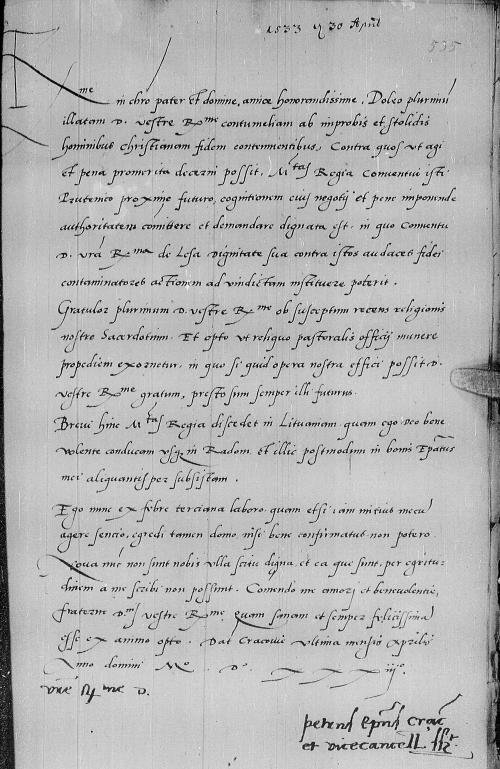 1533 30 April
535
R me in chro pater et domine, amice honorandissime. Doleo plurimu
illatam D. vestre R.me contumeliam ab improbis et stolidis
hominibus christianam fidem contemnentibus. Contra quos vt agi
et pena promerita decerni possit, M.tas Regia Conventui isti
Prutenico proximo futuro, cognitionem eius negotij et pene imponende
authoritatem comittere et demandare dignata est. in quo Conventu
D. vra R.ma de lesa dignitate sua contra istos audaces fidei
contaminatores actionem ad vindictam instituere poterit.
Gratulor plurimum D. vestre R.me ob susceptum recens religionis
nostre Sacerdotium. Et opto vt reliquo pastoralis officij munere
propediem exornetur, in quo si quid opera nostra effici possit D.
vestre R.me gratum, presto sum semper illi futurus.
Brevi hinc M.tas Regia discedet in Lituaniam. quam ego deo bene
volente conducam vsq in Radom. et illic postmodum in bonis Epatus
mei aliquantisper subsistam.
Ego nunc ex febre terciana laboro. quam etsi iam mitius mecu
agere sencio, egredi tamen domo, nisi bene confirmatus non potero.
Noua nuc non sunt nobis vlla scitu digna, et ea que sunt, per egritu-
dinem a me scribi non possunt. Comendo me amori et benevolentie,
fraterne D.ni vestre R.me quam sanam et semper felicissima
esse ex animo opto. Dat Cracovie vltima mensis Aprilis
Anno domini M.o D.o XXXiij.o
Vre R.me D.
petrus Eps Crac
et vicecancell